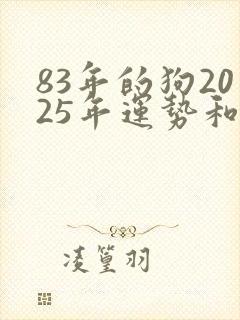 83年的狗20
25年運势和
凌篁羽